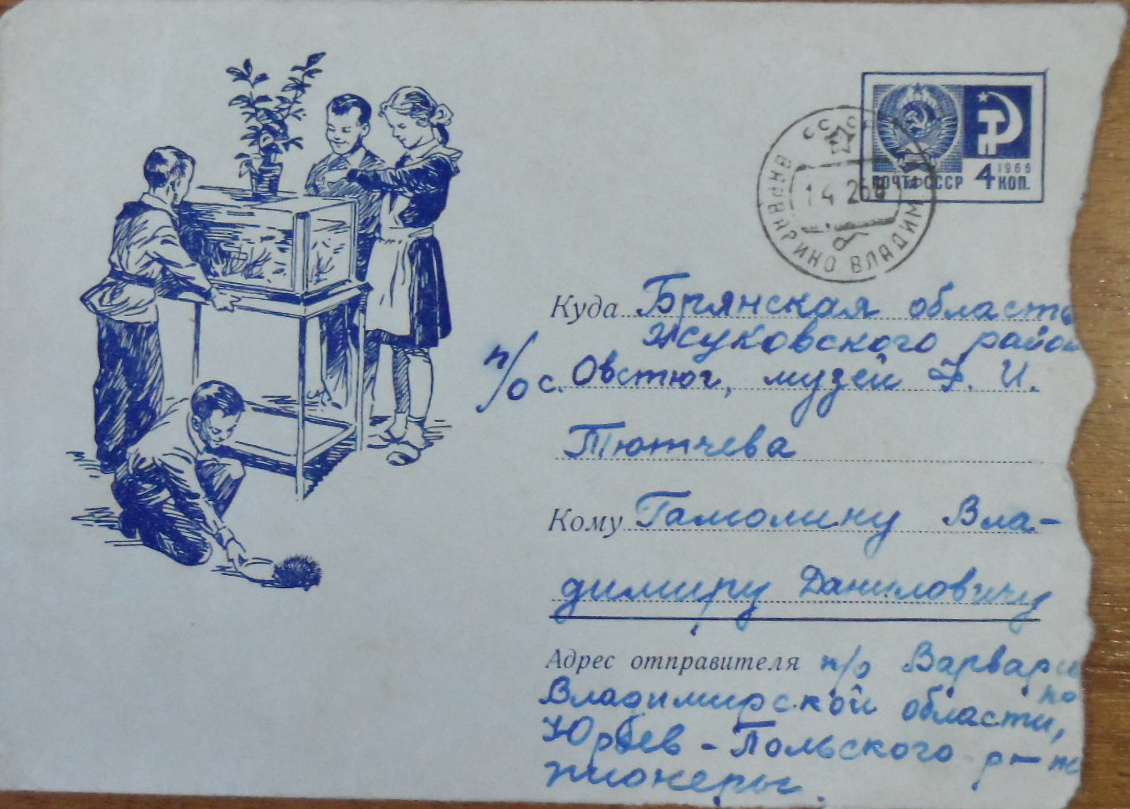 СССР
ВАРВАРИНО ВЛАДИМ
14 2
ПОЧТА СССР
1966
4 КОП.
Куда Брянская область
Жуковского район
п/о с. Овстюг, музей Ф. И.
Тютчева
Кому Гамолину Вла-
димиру Даниловичу
Адрес отправителя п/о Варвари
по
Владимирской области,
Юрьев-Польского р-на
пионеры.